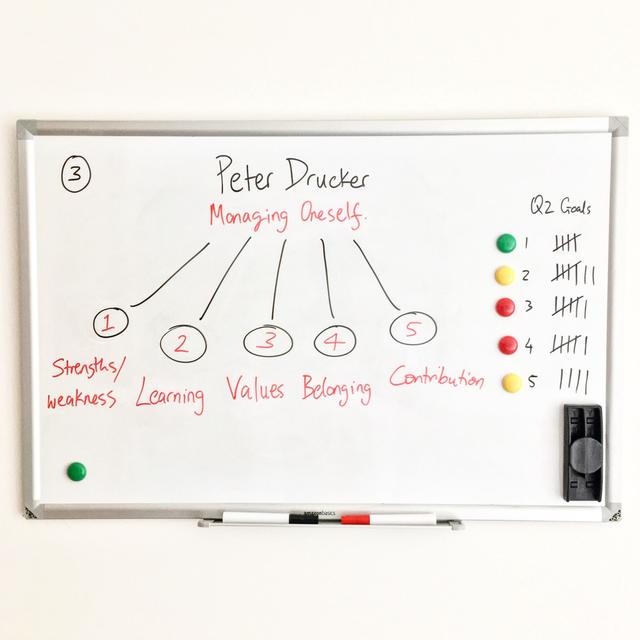 3
Peter Drucker
Managing Oneself.
1
2
3
4
5
Strengths/
weakness
Learning
Values
Belonging
Contribution
Q2 Goals
1
2
3
4
5
amazonbasics